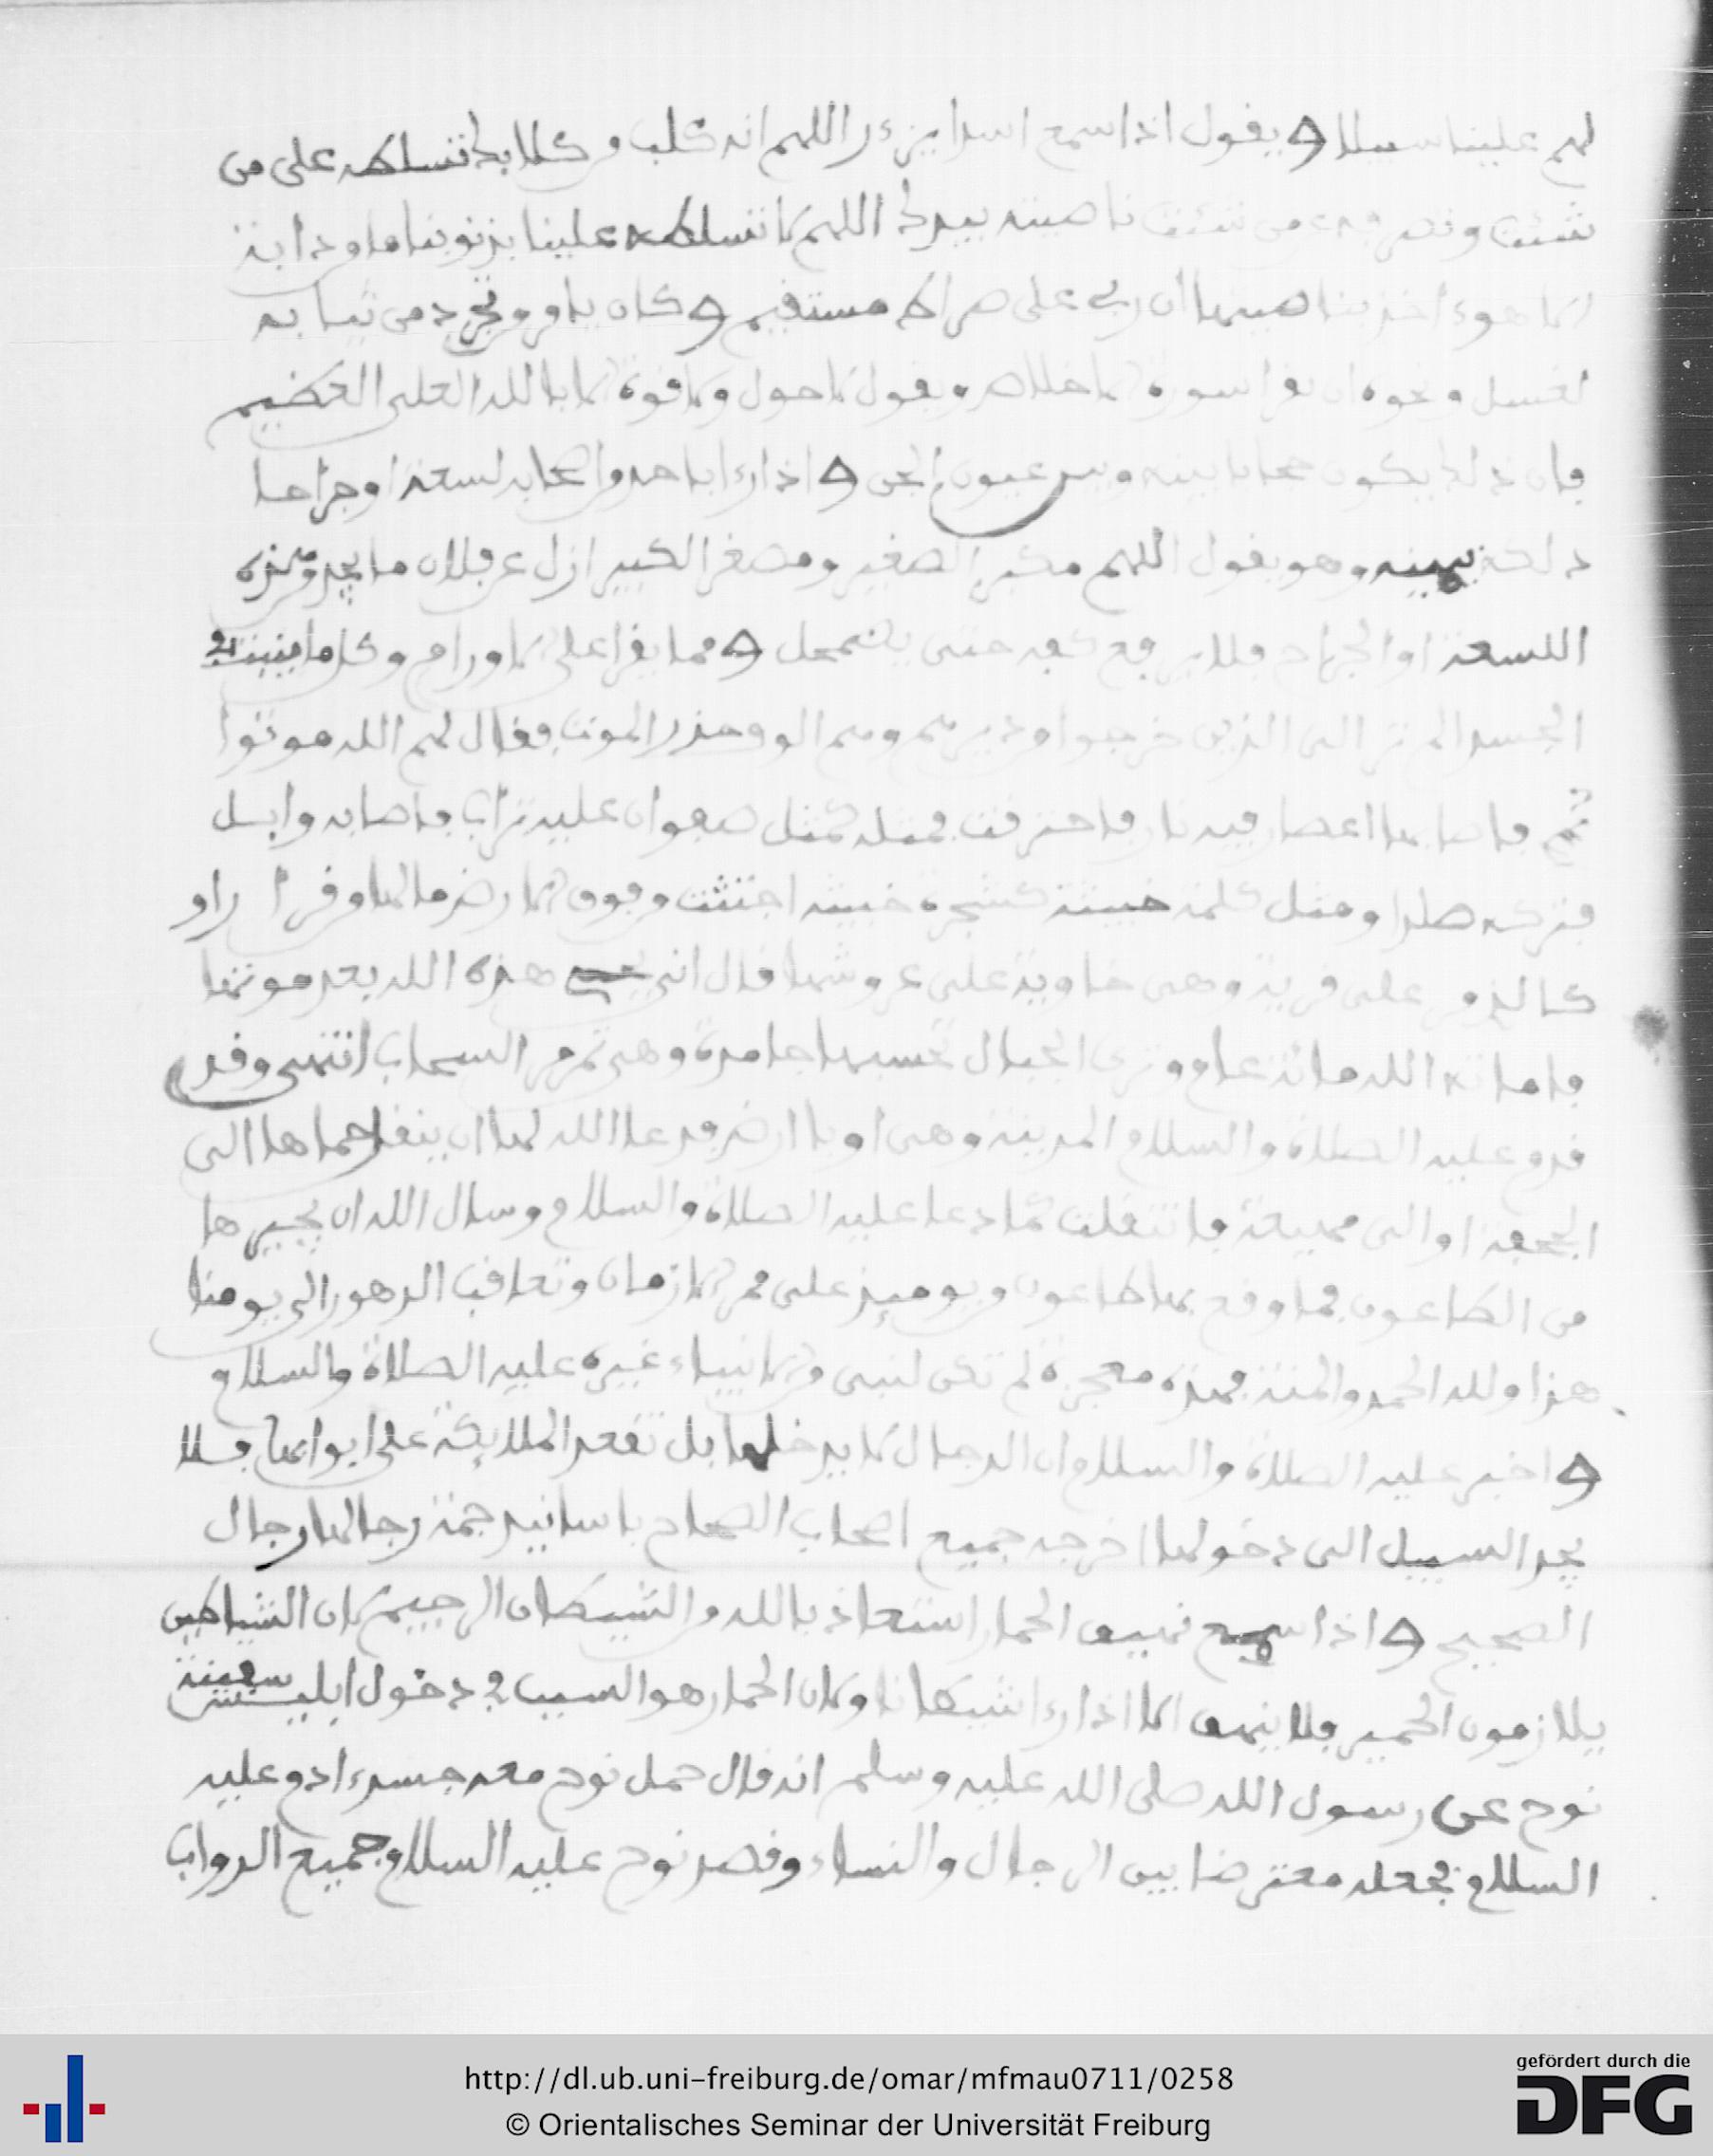 لهم علينا سبيلا ويقول اذا سمع اسدا يزءر اللهم انه كلب من كلابك تسلطه على من
شئت وتصرفه عمن شئت ناصيته بيدك اللهم لا تسلطه علينا بذنوبنا ما من دابة
الا هوءاخذ بناصيتها ان ربي على صراط مستقيم وكان يامر من تجرد من ثيابه
لغسل ونحوه ان يقرا سورة الاخلاص ويقول لا حول ولا قوة الا بالله العلي العظيم
فان ذلك يكون حجابا بينه وبين عيون الجن واذا رءا باحد من اصحابه لسعة او جراحا
دلكه بيمينه وهو يقول اللهم مكبر الصغير ومصغر الكبير ازل عن فلان ما يجد من هذه
اللسعة او الجراح فلا يرفع كفه حتى يضمحل ومما يقرا على الاورام وكل ما ينبت في
الجسد الم تر الى الذين خرجوا من ديرهم وهم الوف حذر الموت فقال لهم الله موتوا
ثم فاصابها اعصار فيه نار فاحترقت فمثله كمثل صفوان عليه تراب فاصابه وابل
فتركه صلدا ومثل كلمة خبيثة كشجرة خبيثة اجتثت من فوق الارض ما لها من قرار او
كالذي مر على قرية وهي خاوية على عروشها قال انى يحي هذه الله بعد موتها
فاماته الله مائة عام وترى الجبال تحسبها جامدة وهي تمر مر السحاب انتهى وقد
قدم عليه الصلاة والسلام المدينة وهي اوبا ارض فدعا الله لها ان ينقل حماها الى
الجحفة او الى مهيعة فانتقلت كما دعا عليه الصلاة والسلام وسال الله ان يجيرها
من الطاعون فما وقع بها طاعون من يوميذ على ممر الازمان وتعاقب الدهور الى يومنا
هذا ولله الحمد والمنة فهذه معجزة لم تكن لنبي من الانبياء غيره عليه الصلاة والسلام
واخبر عليه الصلاة والسلام ان الدجال لا يدخلها بل تقعد الملايكة على ابوابها فلا
يجد السبيل الى دخولها اخرجه جميع اصحاب الصحاح باسانيد جمة رجالها رجال
الصحيح واذا سمع نهيق الحمار استعاذ بالله من الشيطان الرجيم لان الشياطين
يلازمون الحمير فلا ينهق الا اذا رءا شيطانا وكان الحمار هو السبب في دخول ابليس سفينة
نوح عن رسول الله صلى الله عليه وسلم انه قال حمل نوح معه جسدءادم عليه
السلام فجعله معترضا بين الرجال والنساء وقصد نوح عليه السلام جميع الدواب
http://dl.ub.uni-freiburg.de/omar/mfmau0711/0258
© Orientalisches Seminar der Universität Freiburg
gefördert durch die
DFG